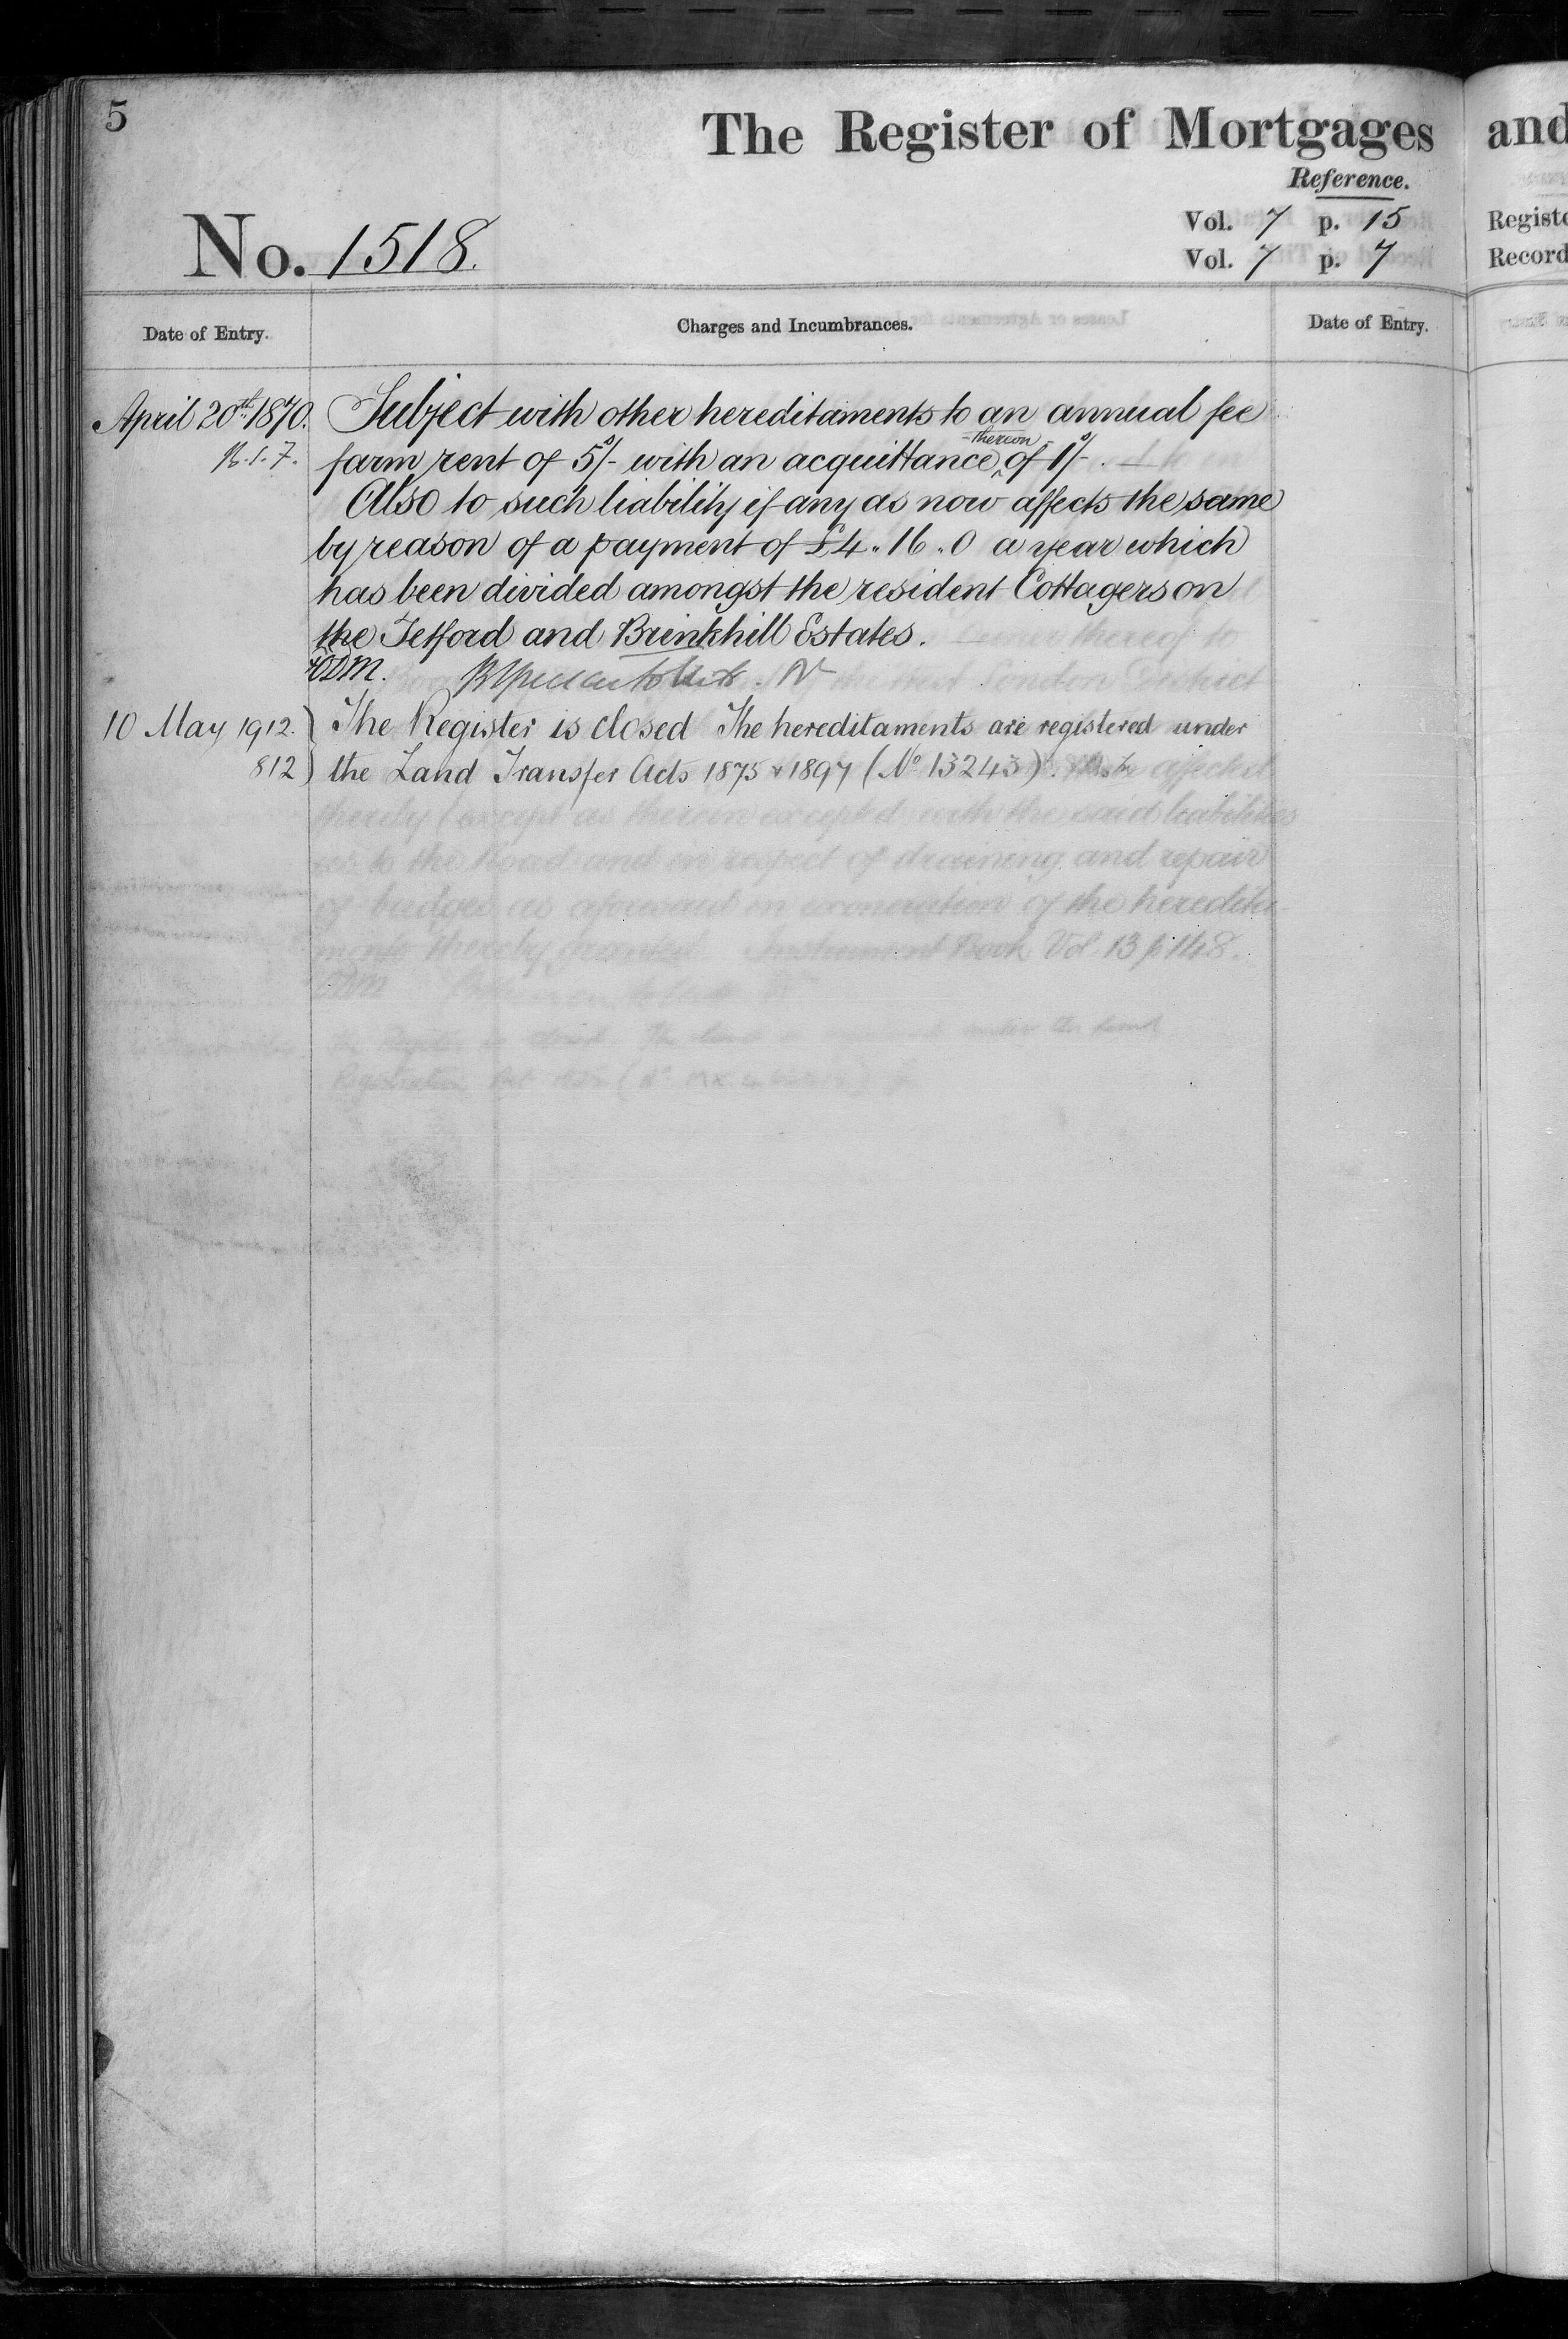 5
The Register of Mortgages and
Reference.
Vol. 7 p. 15 Registe
No. 1518.
Vol. 7 p. 7 Record
Date of Entry. Charges and Incumbrances. Date of Entry.
April 20th 1870. Subject with other hereditaments to an annual fee
farm rent of 5s/- with an acquittance thereon of 1s/-.
Also to such liability if any as now affects the same
by reason of a payment of £4 " 16 " 0 a year which
has been divided amongst the resident Cottagers on
the Tetford and Brinkhill Estates.
10 May 1912. The Register is closed The hereditaments are registered under
812) the Land Transfer Acts 1875 & 1897 (No 13243).